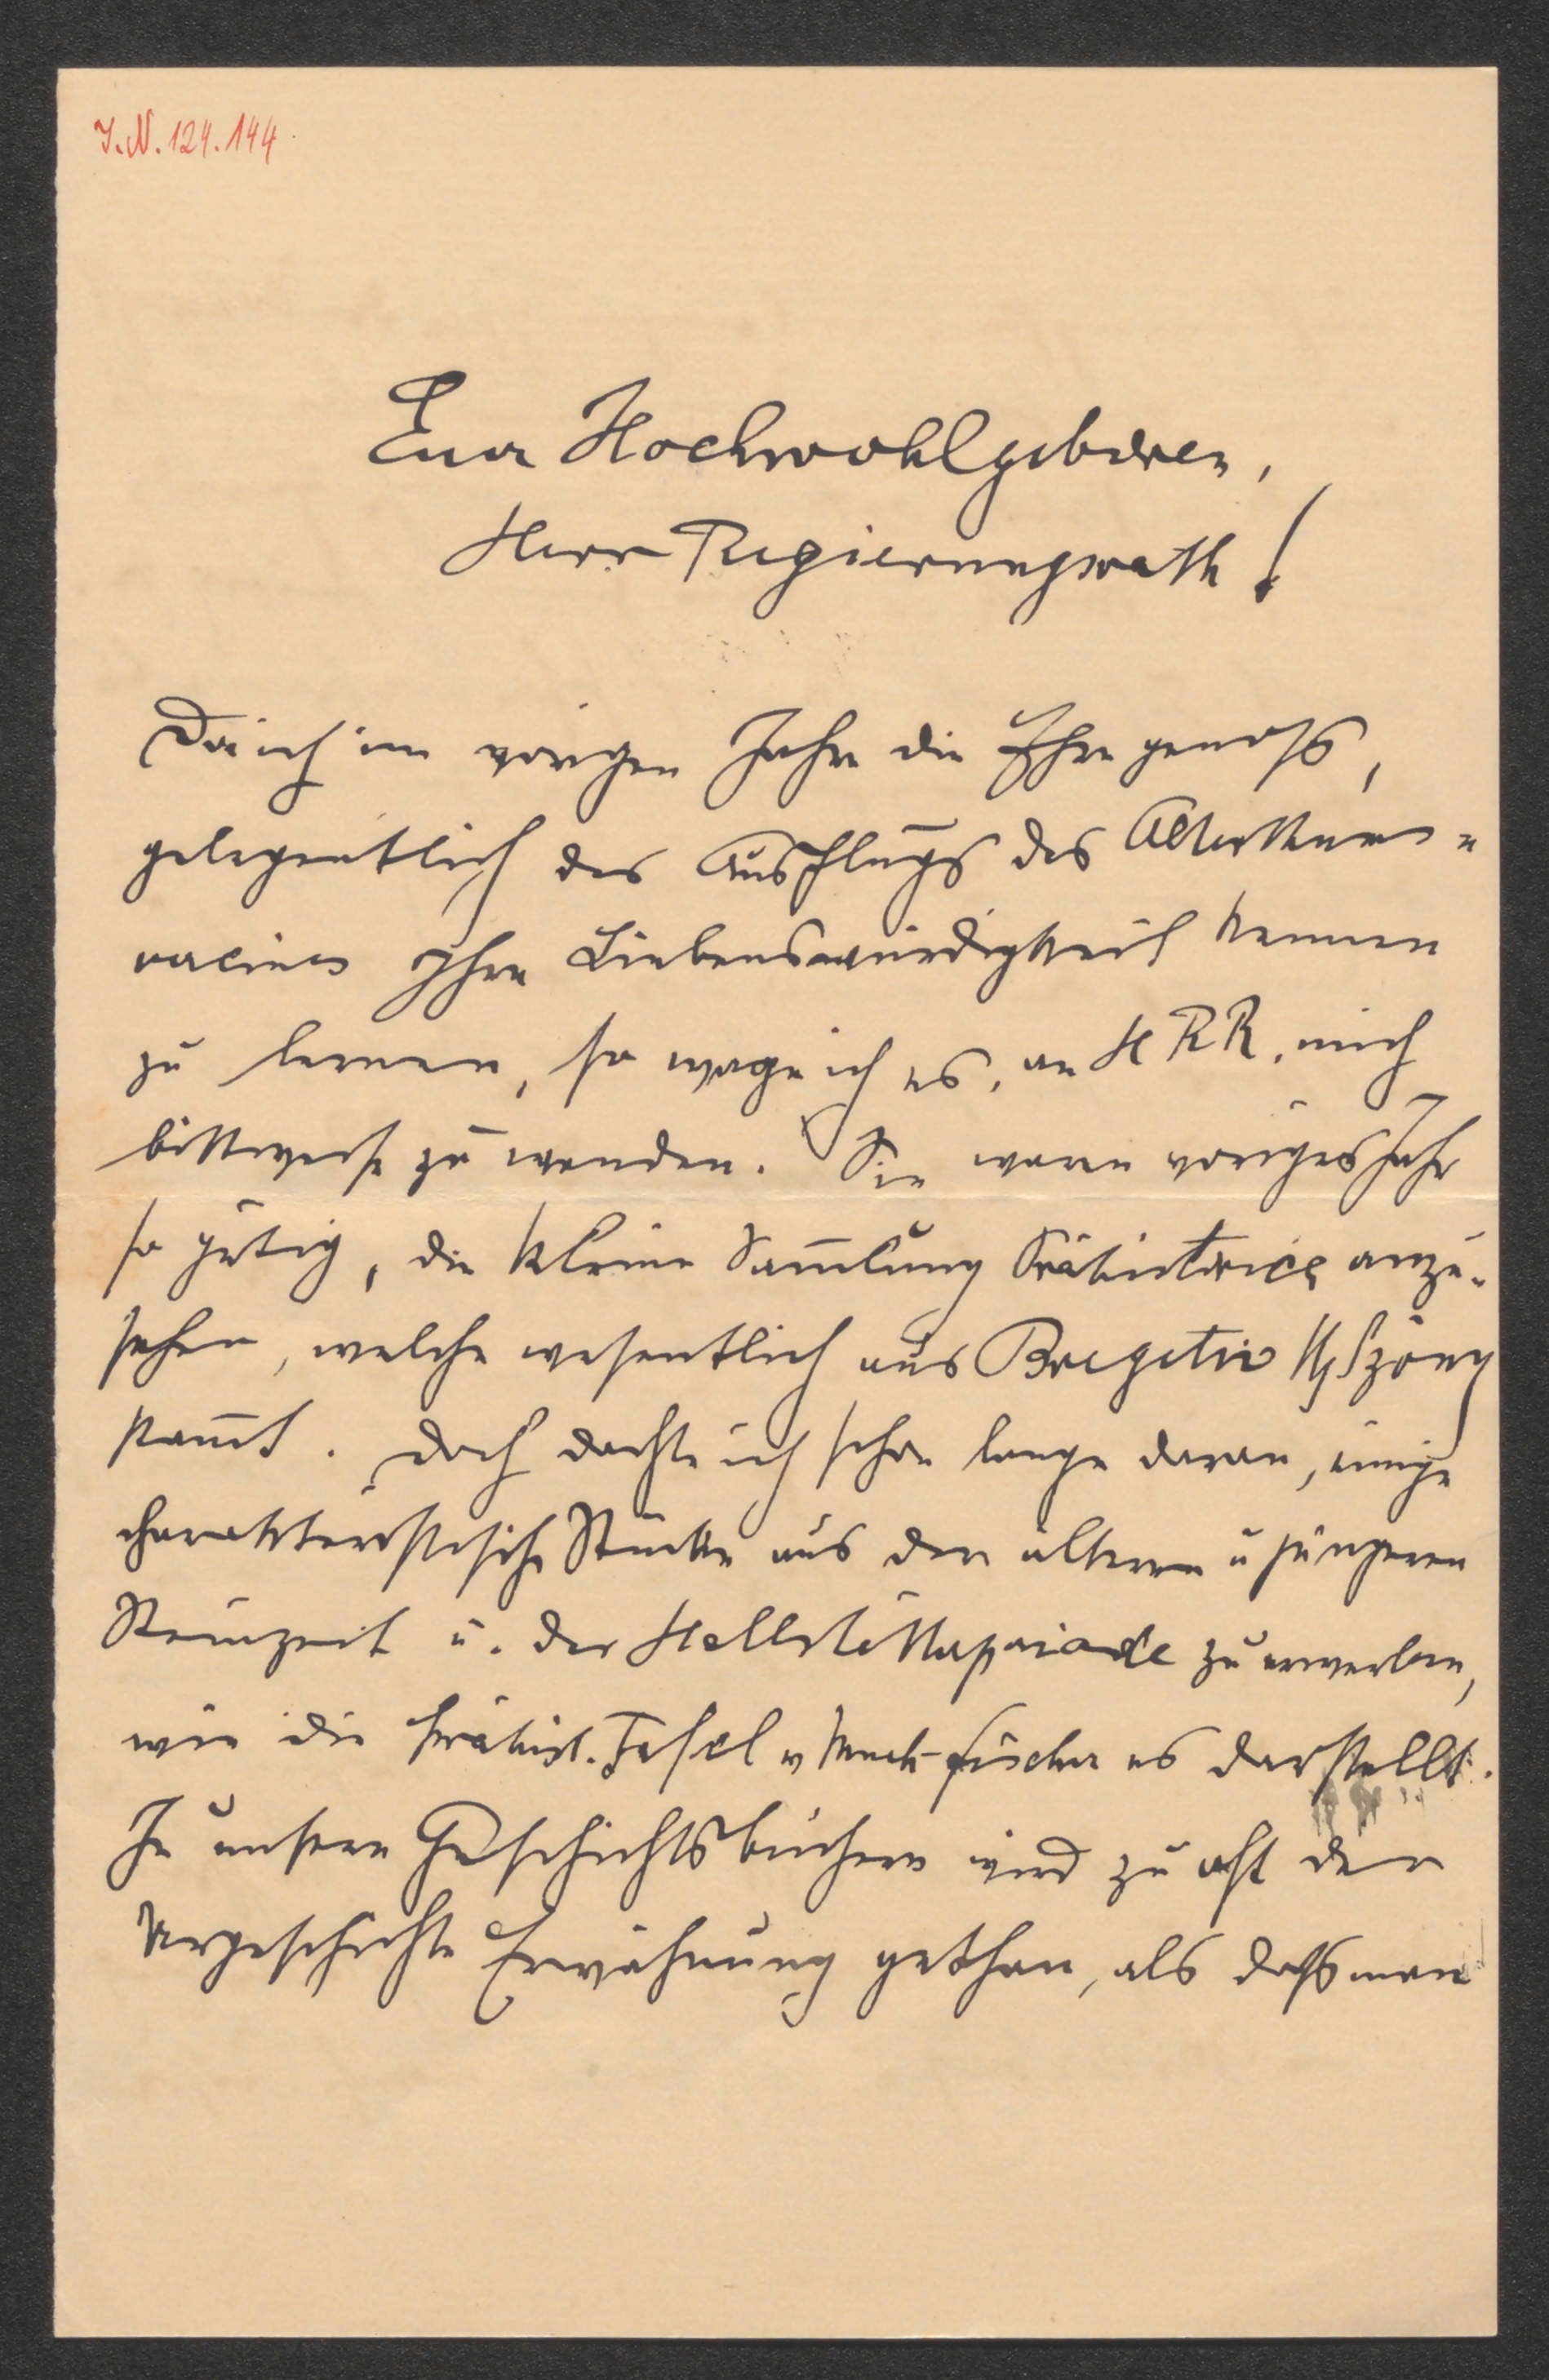 J.N. 124.144
Euer Hochwohlgeboren,
Herr Regierungsrath!
Da ich im vorigen Jahre die Ehre genoß,
gelegentlich des Ausflugs des Alterthums=
vereines Ihre Liebenswürdigkeit kennen
zu lernen, so wage ich es, an H RR. mich
bittweise zu wenden. Sie waren voriges Jahr
so gütig, die kleine Sam̅lung Prähistorica anzu-
sehen, welche wesentlich aus Bregetio Szöny
stam̅t. Doch dachte ich schon lange daran, einige
charakteristische Stücke aus der älteren u jüngeren
Steinzeit u. der Hallstattperiode zu erwerben,
wie die prähist. Tafel v Much-Fischer es darstellt.
In unseren Geschichtsbüchern wird zu oft der
Urgeschichte Erwähnung gethan, als daß man